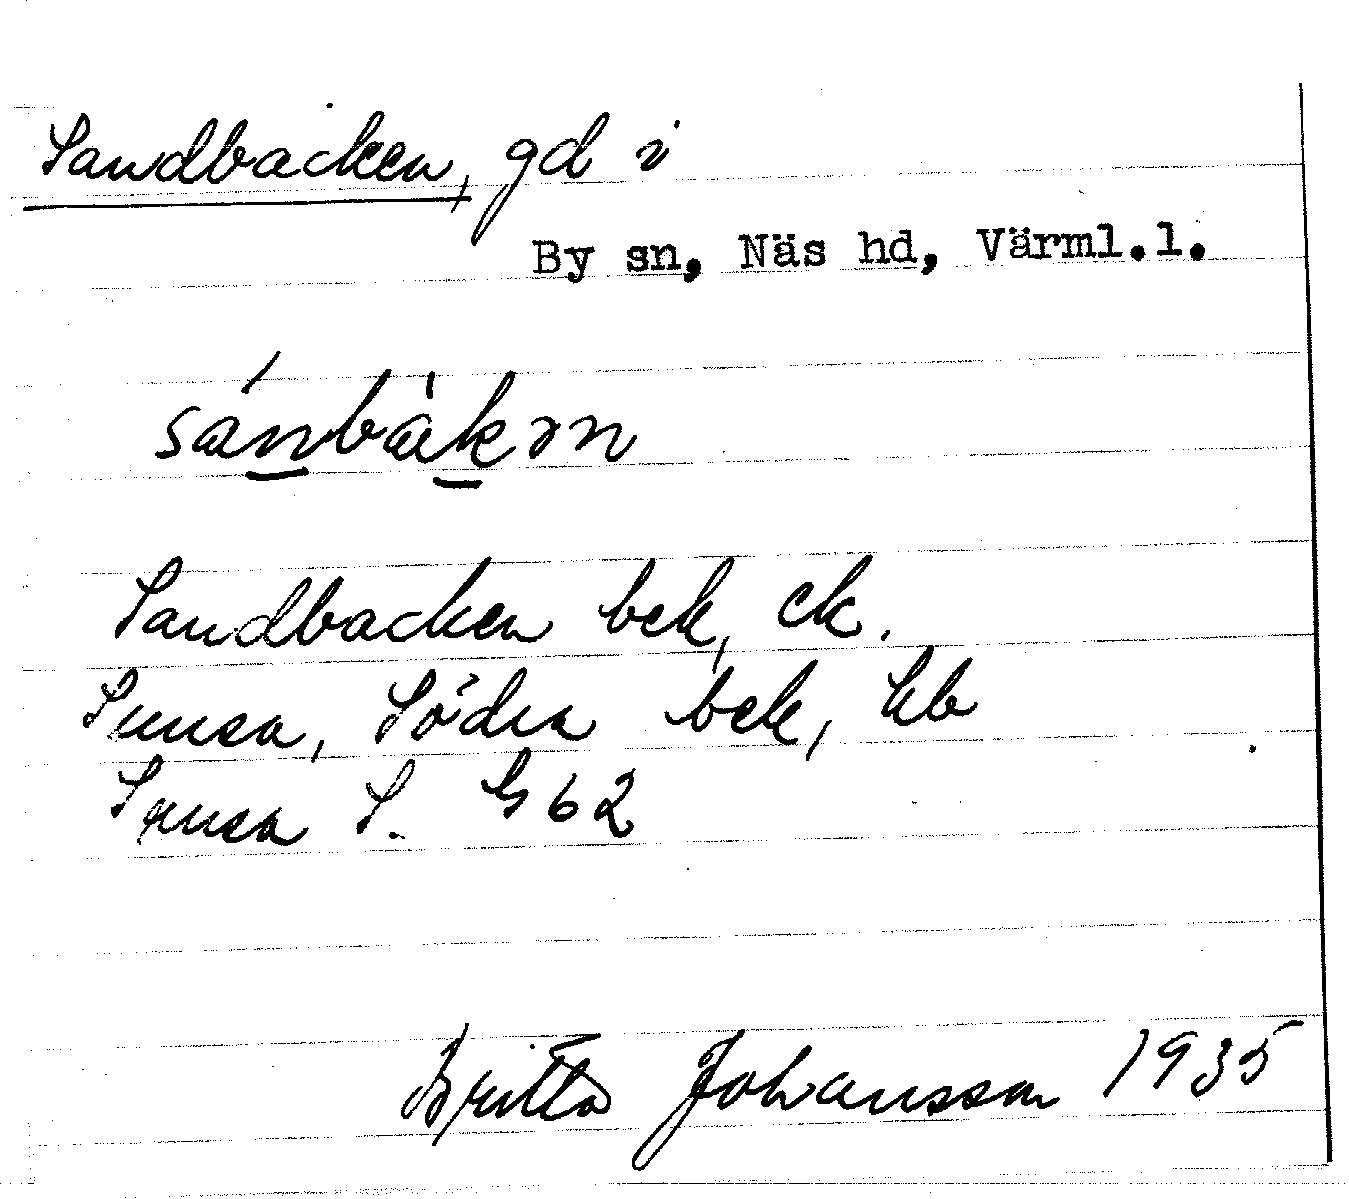 Sandbacken, gd i
By sn, Näs hd, Värml.l.
sánbàkən
Sandbacken bek, ek.
Smusa, Södra bek, kb
Smusa S. G 62
Britta Johansson 1935